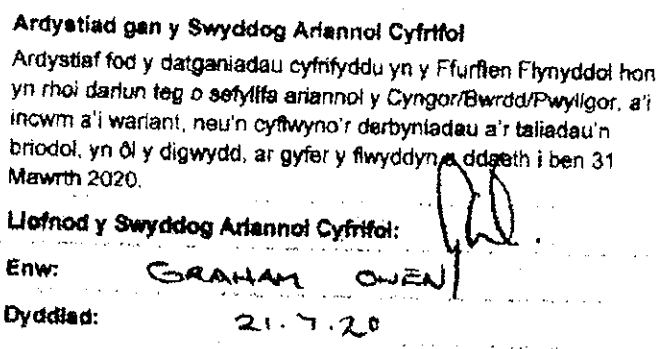 Ardystiad gan y Swyddog Ariannol Cyfrifol
Ardystiaf fod y datganiadau cyfrifyddu yn y Ffurflen Flynyddol hon
yn rhoi darlun teg o sefyllfa ariannol y Cyngor/Bwrdd/Pwyllgor, a'i
incwm a'i wariant, neu'n cyflwyno'r derbyniadau a'r taliadau'n
briodol, yn ôl y digwydd, ar gyfer y flwyddyn a ddaeth i ben 31
Mawrth 2020.
Llofnod y Swyddog Ariannol Cyfrifol:
Enw: GRAHAM OWEN
Dyddiad: 21.7.20